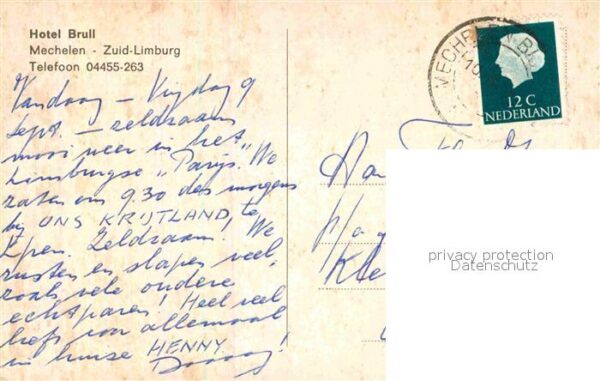 Hotel Brull
Mechelen - Zuid-Limburg
Telefoon 04455-263
MECHELEN BIJ
12 C
NEDERLAND
Vandaag - Vrijdag 9
Sept. - zeldzaam
mooi weer in het
Limburgse "Parijs". We
zaten om 9.30 des morgens
bij ONS KRIJTLAND, te
Epen. Zeldzaam. We
rusten en slapen veel,
zoals vele oudere
echtparen! Heel veel
liefs voor allemaal
in huize HENNY
Aan
privacy protection
Datenschutz